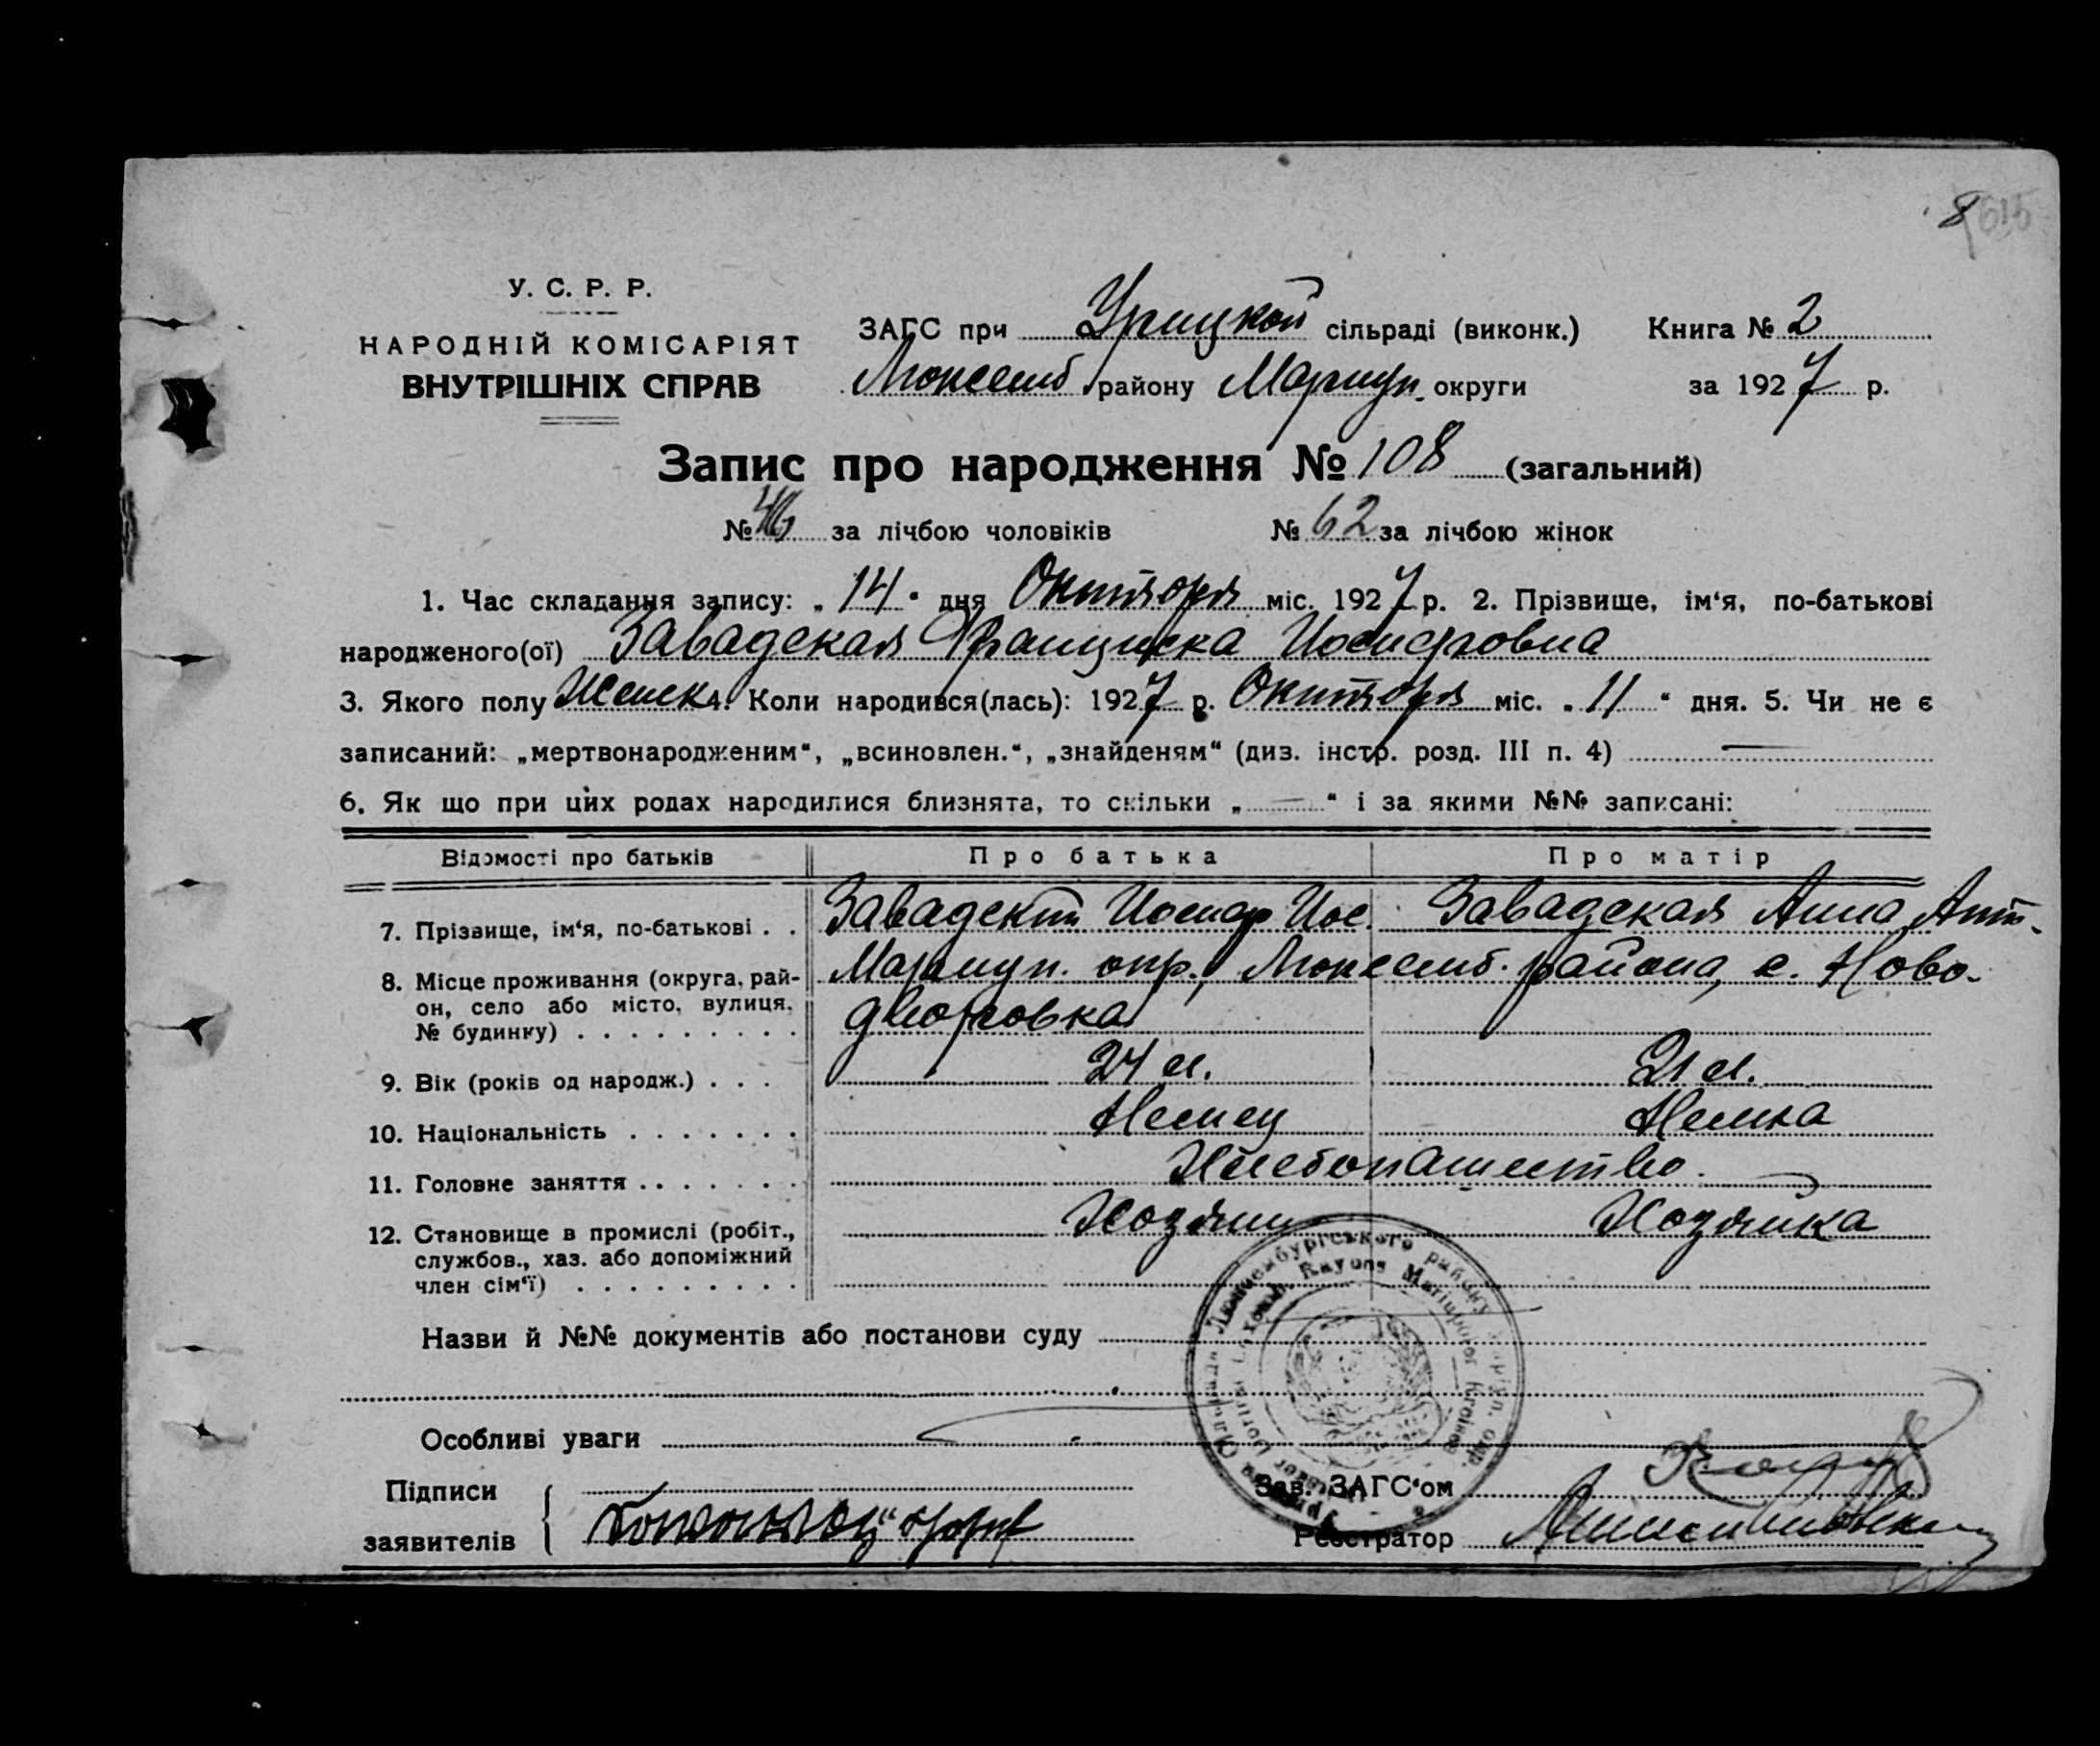 8
У. С. Р. Р.
НАРОДНІЙ КОМІСАРІЯТ
ВНУТРІШНІХ СПРАВ
ЗАГС при Урицкой сільраді (виконк.) Книга № 2
Люксемб району Мариуп. округи за 1927 р.
Запис про народження № 108 (загальний)
№ 46 за лічбою чоловіків № 62 за лічбою жінок
1. Час складання запису: „14“ дня Октября міс. 1927 р. 2. Прізвище, ім‘я, по-батькові
народженого(ої) Завадская Франциска Иосифовна
3. Якого полу Женск 4. Коли народився(лась): 1927 р. Октября міс. „11“ дня. 5. Чи не є
записаний: „мертвонародженим“, „всиновлен.“, „знайденям“ (диз. інстр. розд. III п. 4) —
6. Як що при цих родах народилися близнята, то скільки „—“ і за якими №№ записані:
Відомості про батьків Про батька Про матір
7. Прізвище, ім‘я, по-батькові . . Завадский Иосиф Иос. Завадская Анна Ант.
8. Місце проживання (округа, рай- Мариуп. окр., Люксемб. района, с. Ново-
он, село або місто, вулиця, дворовка
№ будинку) . . . . . . . . .
9. Вік (років од народж.) . . . 24 л. 21 л.
10. Національність . . . . . . . Немец Немка
11. Головне заняття . . . . . . . Хлебопашество.
12. Становище в промислі (робіт., Хозяин Хозяйка
службов., хаз. або допоміжний
член сім‘ї) . . . . . . . . .
Назви й №№ документів або постанови суду
Люксембургського району Маріюп. окр.
Rayons Mariupoler Kreises
Особливі уваги
Підписи
заявителів
Зав. ЗАГС‘ом
Реєстратор